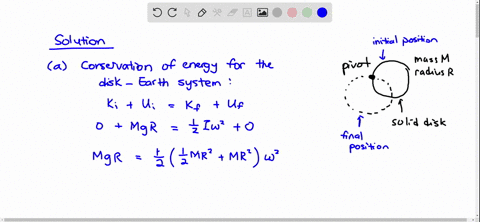 Solution
(a) Conservation of energy for the
disk - Earth system :
Ki + Ui = Kf + Uf
0 + MgR = 1/2 Iω² + 0
MgR = 1/2 (1/2 MR² + MR²) ω²
initial position
pivot
mass M
radius R
solid disk
final
position